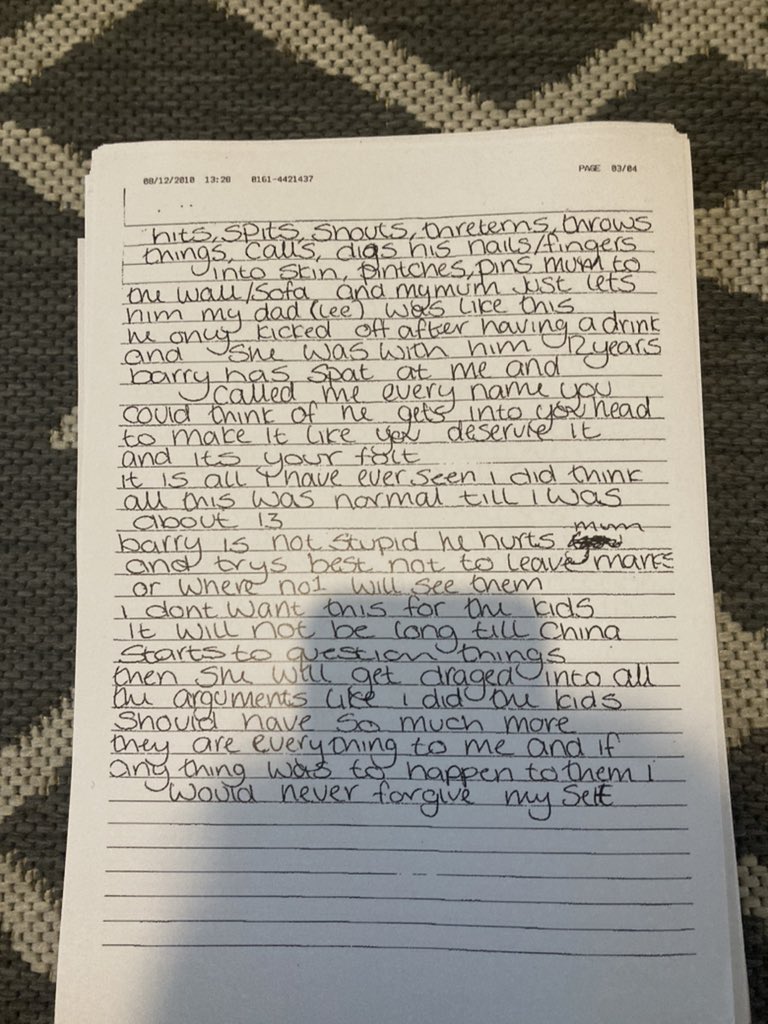 08/12/2010 13:20 0161-4421437 PAGE 03/04
hits, spits, shouts, threterns, throws
things, calls, digs his nails/fingers
into skin, pintches, pins mum to
the wall/sofa and my mum just lets
him my dad (lee) was like this
he only kicked off after having a drink
and she was with him 12 years
barry has spat at me and
called me every name you
could think of he gets into your head
to make it like you deserve it
and its your folt
it is all I have ever seen i did think
all this was normal till i was
about 13
barry is not stupid he hurts mum
and trys best not to leave marks
or where no1 will see them
i dont want this for the kids
it will not be long till China
starts to question things
then she will get draged into all
the arguments like i did the kids
should have so much more
they are everything to me and if
any thing was to happen to them i
would never forgive my self